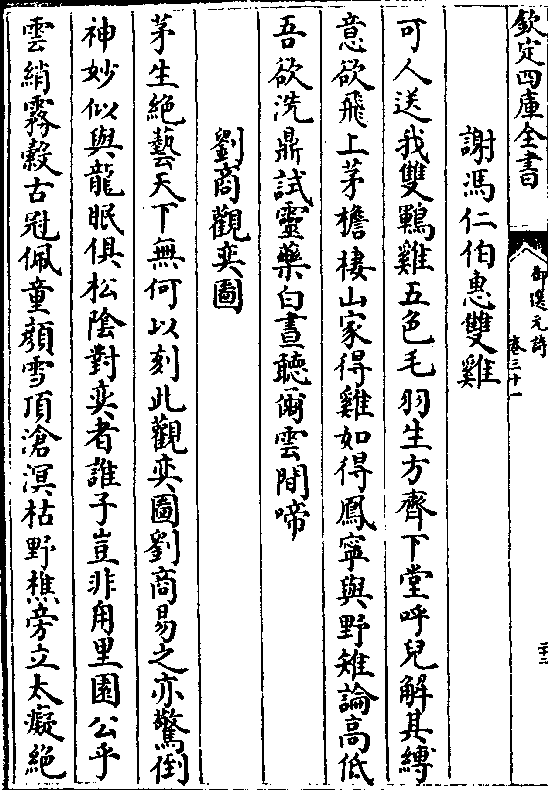 欽定四庫全書
御選元詩
卷三十一
謝馮仁伯惠雙雞
可人送我雙鶤雞五色毛羽生方齊下堂呼兒解其縛
意欲飛上茅檐棲山家得雞如得鳳寧與野雉論高低
吾欲洗鼎試靈藥白晝聽爾雲間啼
劉商觀奕圖
茅生絶藝天下無何以刻此觀奕圖劉商易之亦驚倒
神妙似與龍眠俱松陰對奕者誰子豈非甪里園公乎
雲綃霧縠古冠佩童顔雪頂滄溟枯野樵旁立太癡絶